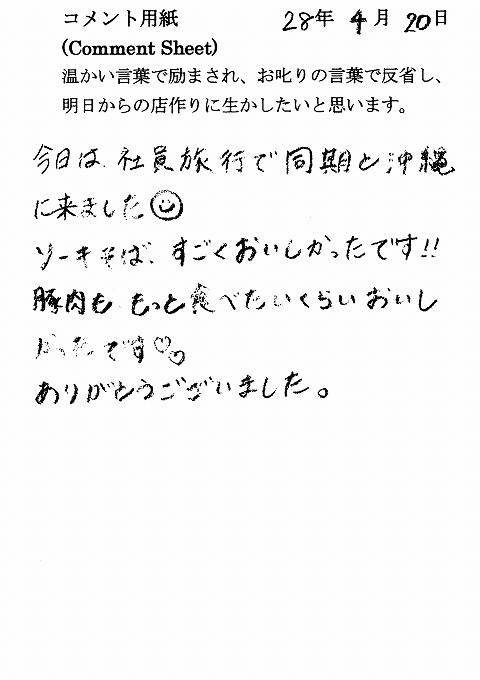 コメント用紙 28年 4月 20日
(Comment Sheet)
温かい言葉で励まされ、お叱りの言葉で反省し、
明日からの店作りに生かしたいと思います。
今日は、社員旅行で同期と沖縄
に来ました
ソーキそば、すごくおいしかったです!!
豚肉も、もっと食べたいくらいおいし
かったです♡♡
ありがとうございました。